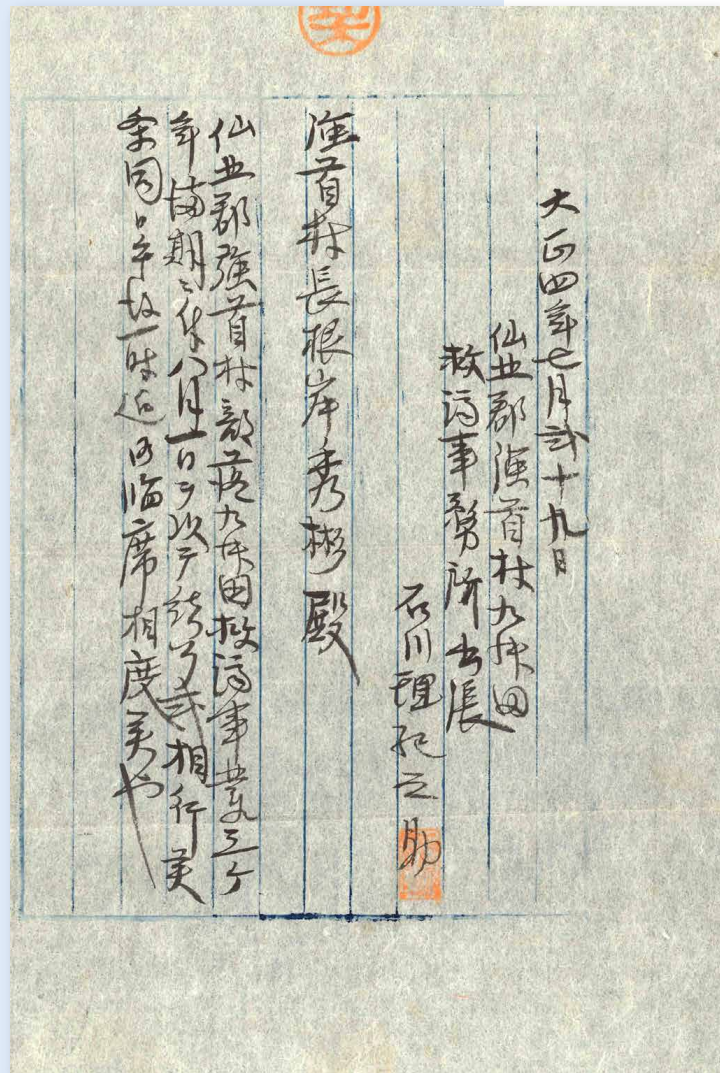 大正四年七月弐十九日
仙北郡強首村九升田
救済事務所出張
石川理紀之助
強首村長根岸秀彬殿
仙北郡強首村部落九升田救済事業三ケ
年満期ニ付八月一日ヲ以テ終了式相行候
条同日午前 時迄御臨席相度候也